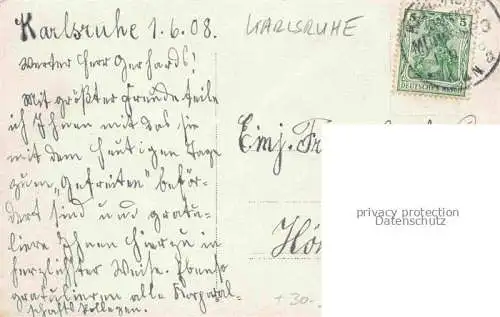 Karlsruhe 1.6.08.
KARLSRUHE
Werter Herr Gerhards!
Mit größter Freude teile
ich Ihnen mit das sie
mit dem heutigen Tage
zum „Gefreiten" beför-
dert sind und gratu-
liere Ihnen hierzu in
herzlichster Weise. Ebenso
gratulieren alle Korporal-
schaftskollegen.
Einj. Fr
Hö
+30.-
5
DEUTSCHES REICH
privacy protection
Datenschutz